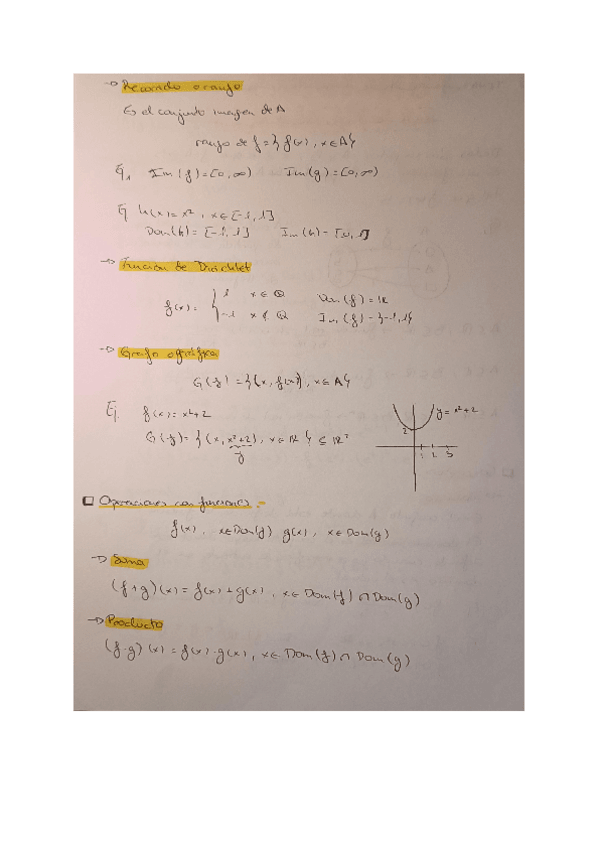 → Recorrido o rango
Es el conjunto imagen de A
rango de f = { f(x), x ∈ A }
Ej. Im(f) = [0, ∞) Im(g) = [0, ∞)
Ej h(x) = x², x ∈ [-1, 1]
Dom(h) = [-1, 1] Im(h) = [0, 1]
→ Función de Dirichlet
f(x) = { 1 x ∈ Q Dom(f) = IR
-1 x ∉ Q Im(f) = {-1, 1}
→ Grafo o gráfica
G(f) = {(x, f(x)), x ∈ A}
Ej. f(x) = x² + 2
y = x² + 2
G(f) = {(x, x² + 2), x ∈ IR} ⊆ IR²
y
2
1 2 3
□ Operaciones con funciones.-
f(x), x ∈ Dom(f) g(x), x ∈ Dom(g)
→ Suma
(f + g)(x) = f(x) + g(x), x ∈ Dom(f) ∩ Dom(g)
→ Producto
(f · g)(x) = f(x) · g(x), x ∈ Dom(f) ∩ Dom(g)